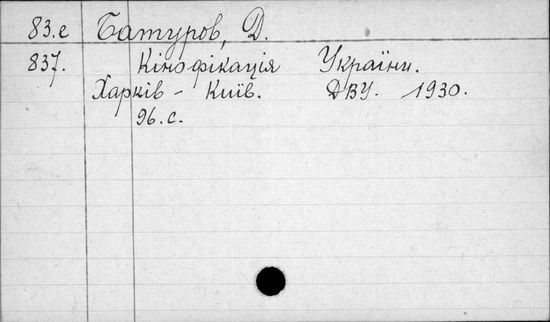 83.е Батуров, Д.
837. Кінофікація України.
Харків - Київ. ДВУ. 1930.
96.с.